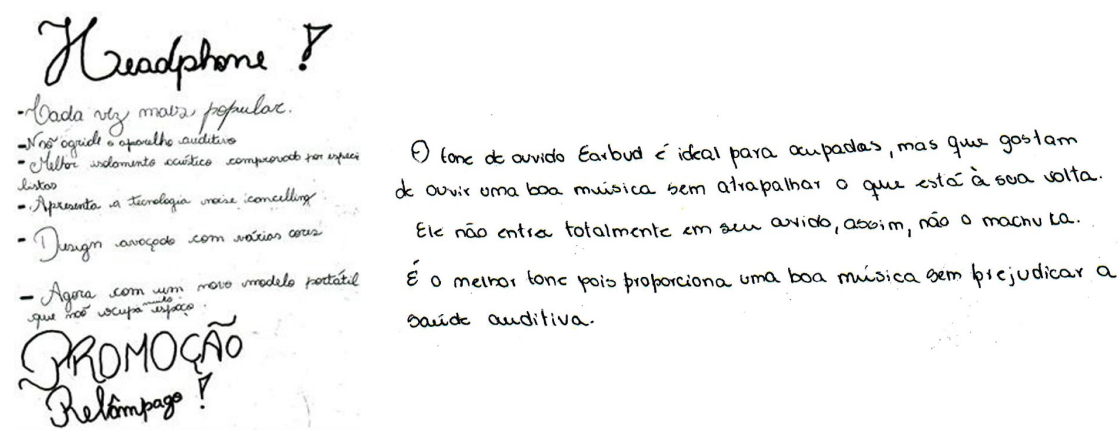 Headphone !
- Cada vez mais popular.
- Não agride o aparelho auditivo
- Melhor isolamento acústico comprovado por especi
listas
- Apresenta a tecnologia noise concelling.
- Design avaçado com várias cores
- Agora com um novo modelo portátil
que não ocupa muito espaço.
PROMOÇÃO
Relâmpago !
O fone de ouvido Earbud é ideal para ocupadas, mas que gostam
de ouvir uma boa música sem atrapalhar o que está à sua volta.
Ele não entra totalmente em seu ouvido, assim, não o machuca.
É o melhor fone pois proporciona uma boa música sem prejudicar a
saúde auditiva.